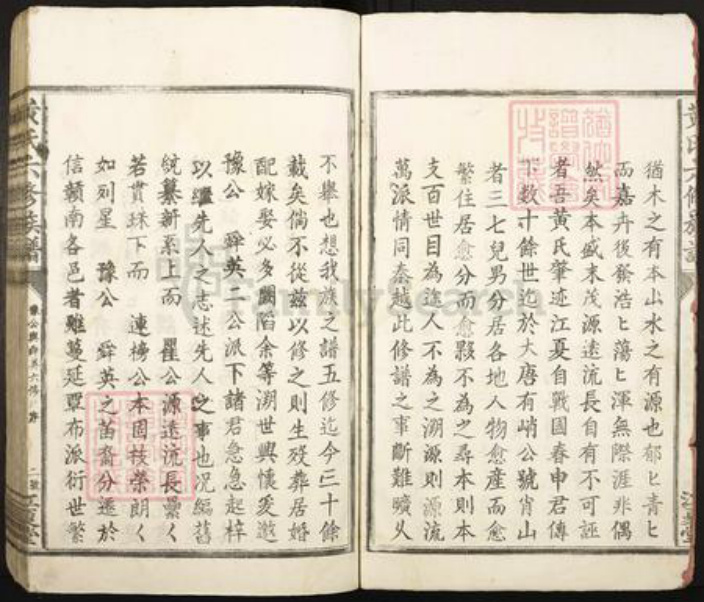 猶木之有本山水之有源也郁ヒ青ヒ
而嘉卉後發浩ヒ蕩ヒ渾無際涯非偶
然矣本盛末茂源遠流長自有不可誣
者吾黃氏肇迹江夏自戰國春申君傳
下数十餘世迄於大唐有峭公號肖山
者三七兒男分居各地人物愈産而愈
繁住居愈分而愈夥不為之尋本則本
支百世目為途人不為之溯源則源流
萬派情同秦越此修譜之事斷難曠乆
不舉也想我族之譜五修迄今三十餘
載矣倘不從兹以修之則生殁葬居婚
配嫁娶必多闕畧余等溯世興懷爰邀
豫公 舜英二公派下諸君急急起梓
以繼先人之志述先人之事也况編舊
統纂新系上而 瞿公源遠流長纍く
若貫珠下而 連榜公本固枝榮朗く
如列星 豫公 舜英之苗裔分遷於
信贛南各邑者雖蔓延覃布派衍世繁
黃氏六修族譜
豫公舜英六修 序
二號
FamilySearch